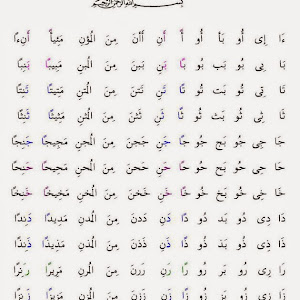 بسم الله الرحمن الرحيم
ءَا إِى أُو بَأ أُو أً أَنِ أَأَنْ مِنَ الْوُنِ مَئِيأً أَنِءًا
بَا بِى بُو بَب بُو بًا بَنِ بَبَن مِنَ الْبنِ مَبِيبًا بَنِبًا
تَا تِى تُو بَت تُو تًا تَنِ تَتَن مِنَ الْتنِ مَتِيتًا تَنِتًا
ثَا ثِى ثُو بَث ثُو ثًا ثَنِ ثَثَن مِنَ الْثنِ مَثِيثًا ثَنِثًا
جَا جِى جُو بَج جُو جًا جَنِ جَجَن مِنَ الْجنِ مَجِيجًا جَنِجًا
حَا حِى حُو بَح حُو حًا حَنِ حَحَن مِنَ الْحنِ مَحِيحًا حَنِحًا
خَا خِى خُو بَخ خُو خًا خَنِ خَخَن مِنَ الْخنِ مَخِيخًا خَنِخًا
دَا دِى دُو بَد دُو دًا دَنِ دَدَن مِنَ الْدنِ مَدِيدًا دَنِدًا
ذَا ذِى ذُو بَذ ذُو ذًا ذَنِ ذَذَن مِنَ الْذنِ مَذِيذًا ذَنِذًا
رَا رِى رُو بَر رُو رًا رَنِ رَرَن مِنَ الْرنِ مَرِيرًا رَنِرًا
زَا زِى زُو بَز زُو زًا زَنِ زَزَن مِنَ الْزنِ مَزِيزًا زَنِزًا